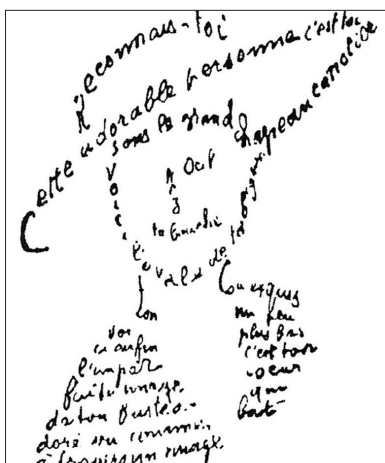 Reconnais-toi
Cette adorable personne c'est toi
Sous le grand chapeau canotier
Oeil
Nez
La bouche
Voici l'ovale de ta figure
Ton
Cou exquis
Voi
ci enfin
l'impar
faite image
de ton buste a-
doré vu comme
à travers un nuage
un peu
plus bas
c'est ton
coeur
qui
bat